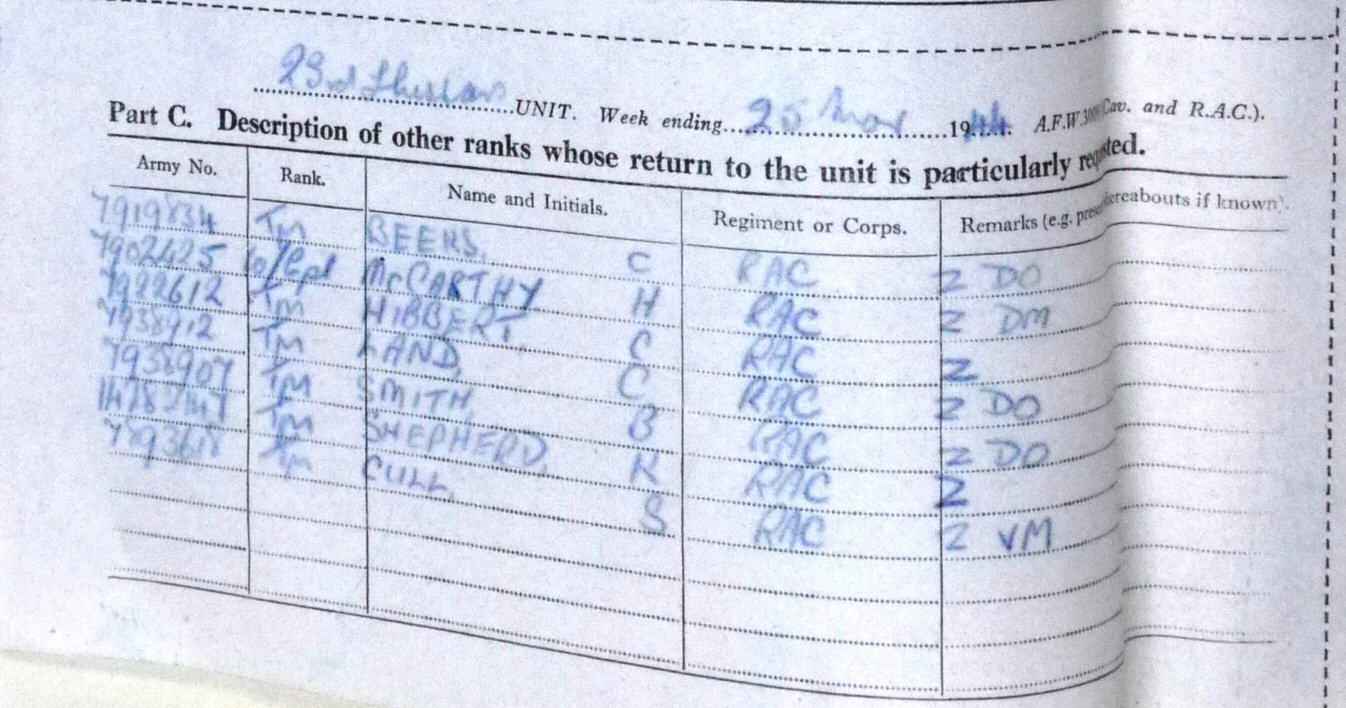 23rd Hussars UNIT. Week ending 20 May 1944. A.F.W. (Cav. and R.A.C.).
Part C. Description of other ranks whose return to the unit is particularly requested.
Army No. Rank. Name and Initials. Regiment or Corps. Remarks (e.g. present whereabouts if known).
7919834 Tm BEERS, C RAC Z DO
7902425 Cpl McCARTHY H RAC Z DM
7922612 Tm HIBBERT, C RAC Z
Tm LAND, C RAC Z DO
7938907 Tm SMITH, B RAC Z DO
Tm SHEPHERD, K RAC Z
7893618 Tm CULL, S RAC Z VM